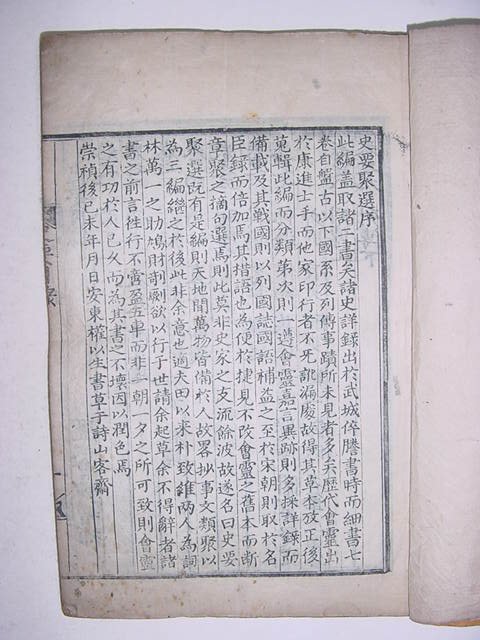 史要聚選序
此編盖取諸二書矣諸史詳録出於武城倅謄書時而細書七
卷自盤古以下國系及列傳事蹟所未見者多矣歷代會靈出
於康進士手而他家印行者不死訛漏處故得其草本攷正後
蒐輯此編而分類第次則一遵會靈嘉言異跡則多採詳録而
備載及其戰國則以列國誌國語補益之至於宋朝則取於名
臣録而倍加焉其措語也為便於捷見不改會靈之舊本而斷
章聚之摘句選焉則此莫非史家之支流餘波故遂名曰史要
聚選既有是編則天地間萬物皆備於人故畧抄事文類聚以
為三編繼之於後此非余意也適夫田以采朴致維兩人為詞
林萬一之助鳩財剞劂欲以行于世請余起草余不得辭者諸
書之前言徃行不啻盈五車而非一朝一夕之所可致則會靈
之有功於人已久而為其書之不壞因以潤色焉
崇禎後己未年月日安東權以生書草于詩山客齋